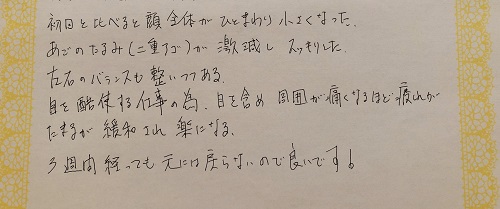 初日と比べると顔全体がひとまわり小さくなった.
あごのたるみ(二重アゴ)が激減しスッキリした.
左右のバランスも整いつつある.
目を酷使する仕事の為、目を含め周囲が痛くなるほど疲れが
たまるが緩和され楽になる.
3週間経っても元には戻らないので良いです!